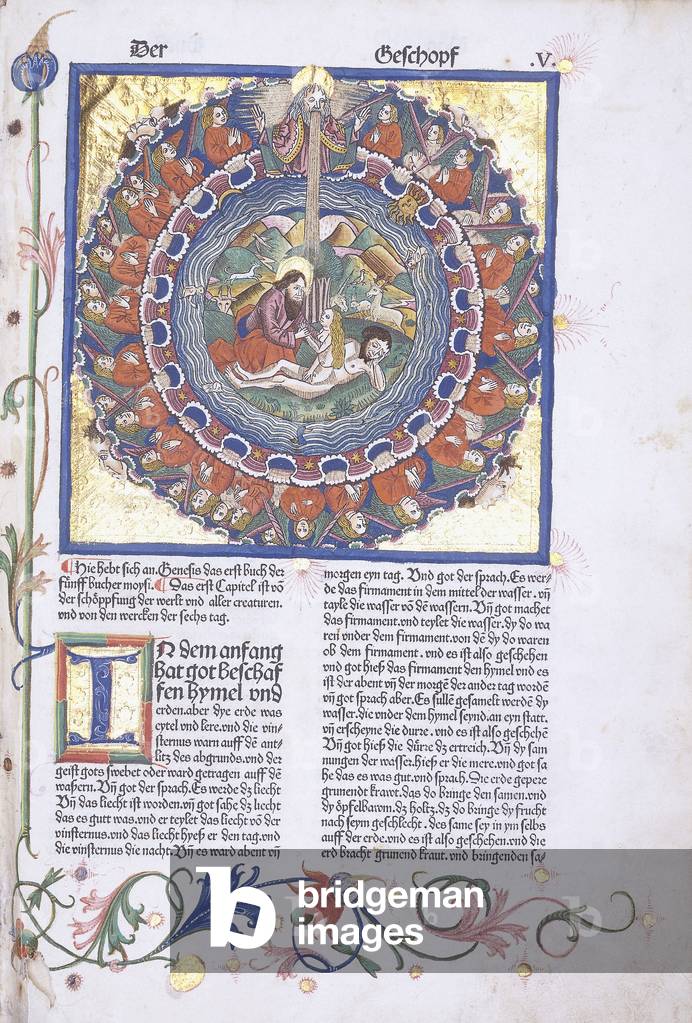 Der Geschopf .V.
Hie hebt sich an. Genesis das erst buch der
fünff bucher moysi. Das erst Capitel ist vō
der schöppfung der werlt vnd aller creaturen.
vnd von den wercken der sechs tag.
IN dem anfang
hat got beschaf
fen hymel vnd
erden. aber dye erde was
eytel vnd lere. vnd die vin-
sternus warn auff dē ant-
litz des abgrunds. vnd der
geist gots swebet oder ward getragen auff dē
wassern. Vn̄ got der sprach. Es werde dz liecht
Vn̄ das liecht ist worden. vn̄ got sahe dz liecht
das es gutt was. vnd er teylet das liecht vō der
vinsternus. vnd das liecht hyeß er den tag. vnd
die vinsternus die nacht. Vn̄ es ward abent vn̄
morgen eyn tag. Vnd got der sprach. Es wer-
de das firmament in dem mittel der wasser. vn̄
tayle die wasser vō dē wassern. Vn̄ got machet
das firmament. vnd teylet die wasser. dy do wa
ren vnder dem firmament. von dē dy do waren
ob dem firmament. vnd es ist also geschehen
vnd got hieß das firmament den hymel vnd es
ist der abent vn̄ der morgē der ander tag wordē
vn̄ got sprach aber. Es sullē gesamelt werdē dy
wasser. die vnder dem hymel seynd. an eyn statt.
vn̄ erscheyne die durre. vnd es ist also geschehē
Vn̄ got hieß die dürre dz ertreich. Vn̄ dy sam
nungen der wasser. hieß er die mere. vnd got sa
he das es was gut. vnd sprach. Die erde gepere
grunendt krawt. das do bringe den samen. vnd
dy öpfelbawm. dz holtz. dz do bringe dy frucht
nach seym geschlecht. des same sey in ym selbs
auff der erde. vnd es ist also geschehen. vnd die
erd bracht grunend kraut. vnd bringenden sa-
b bridgeman
images